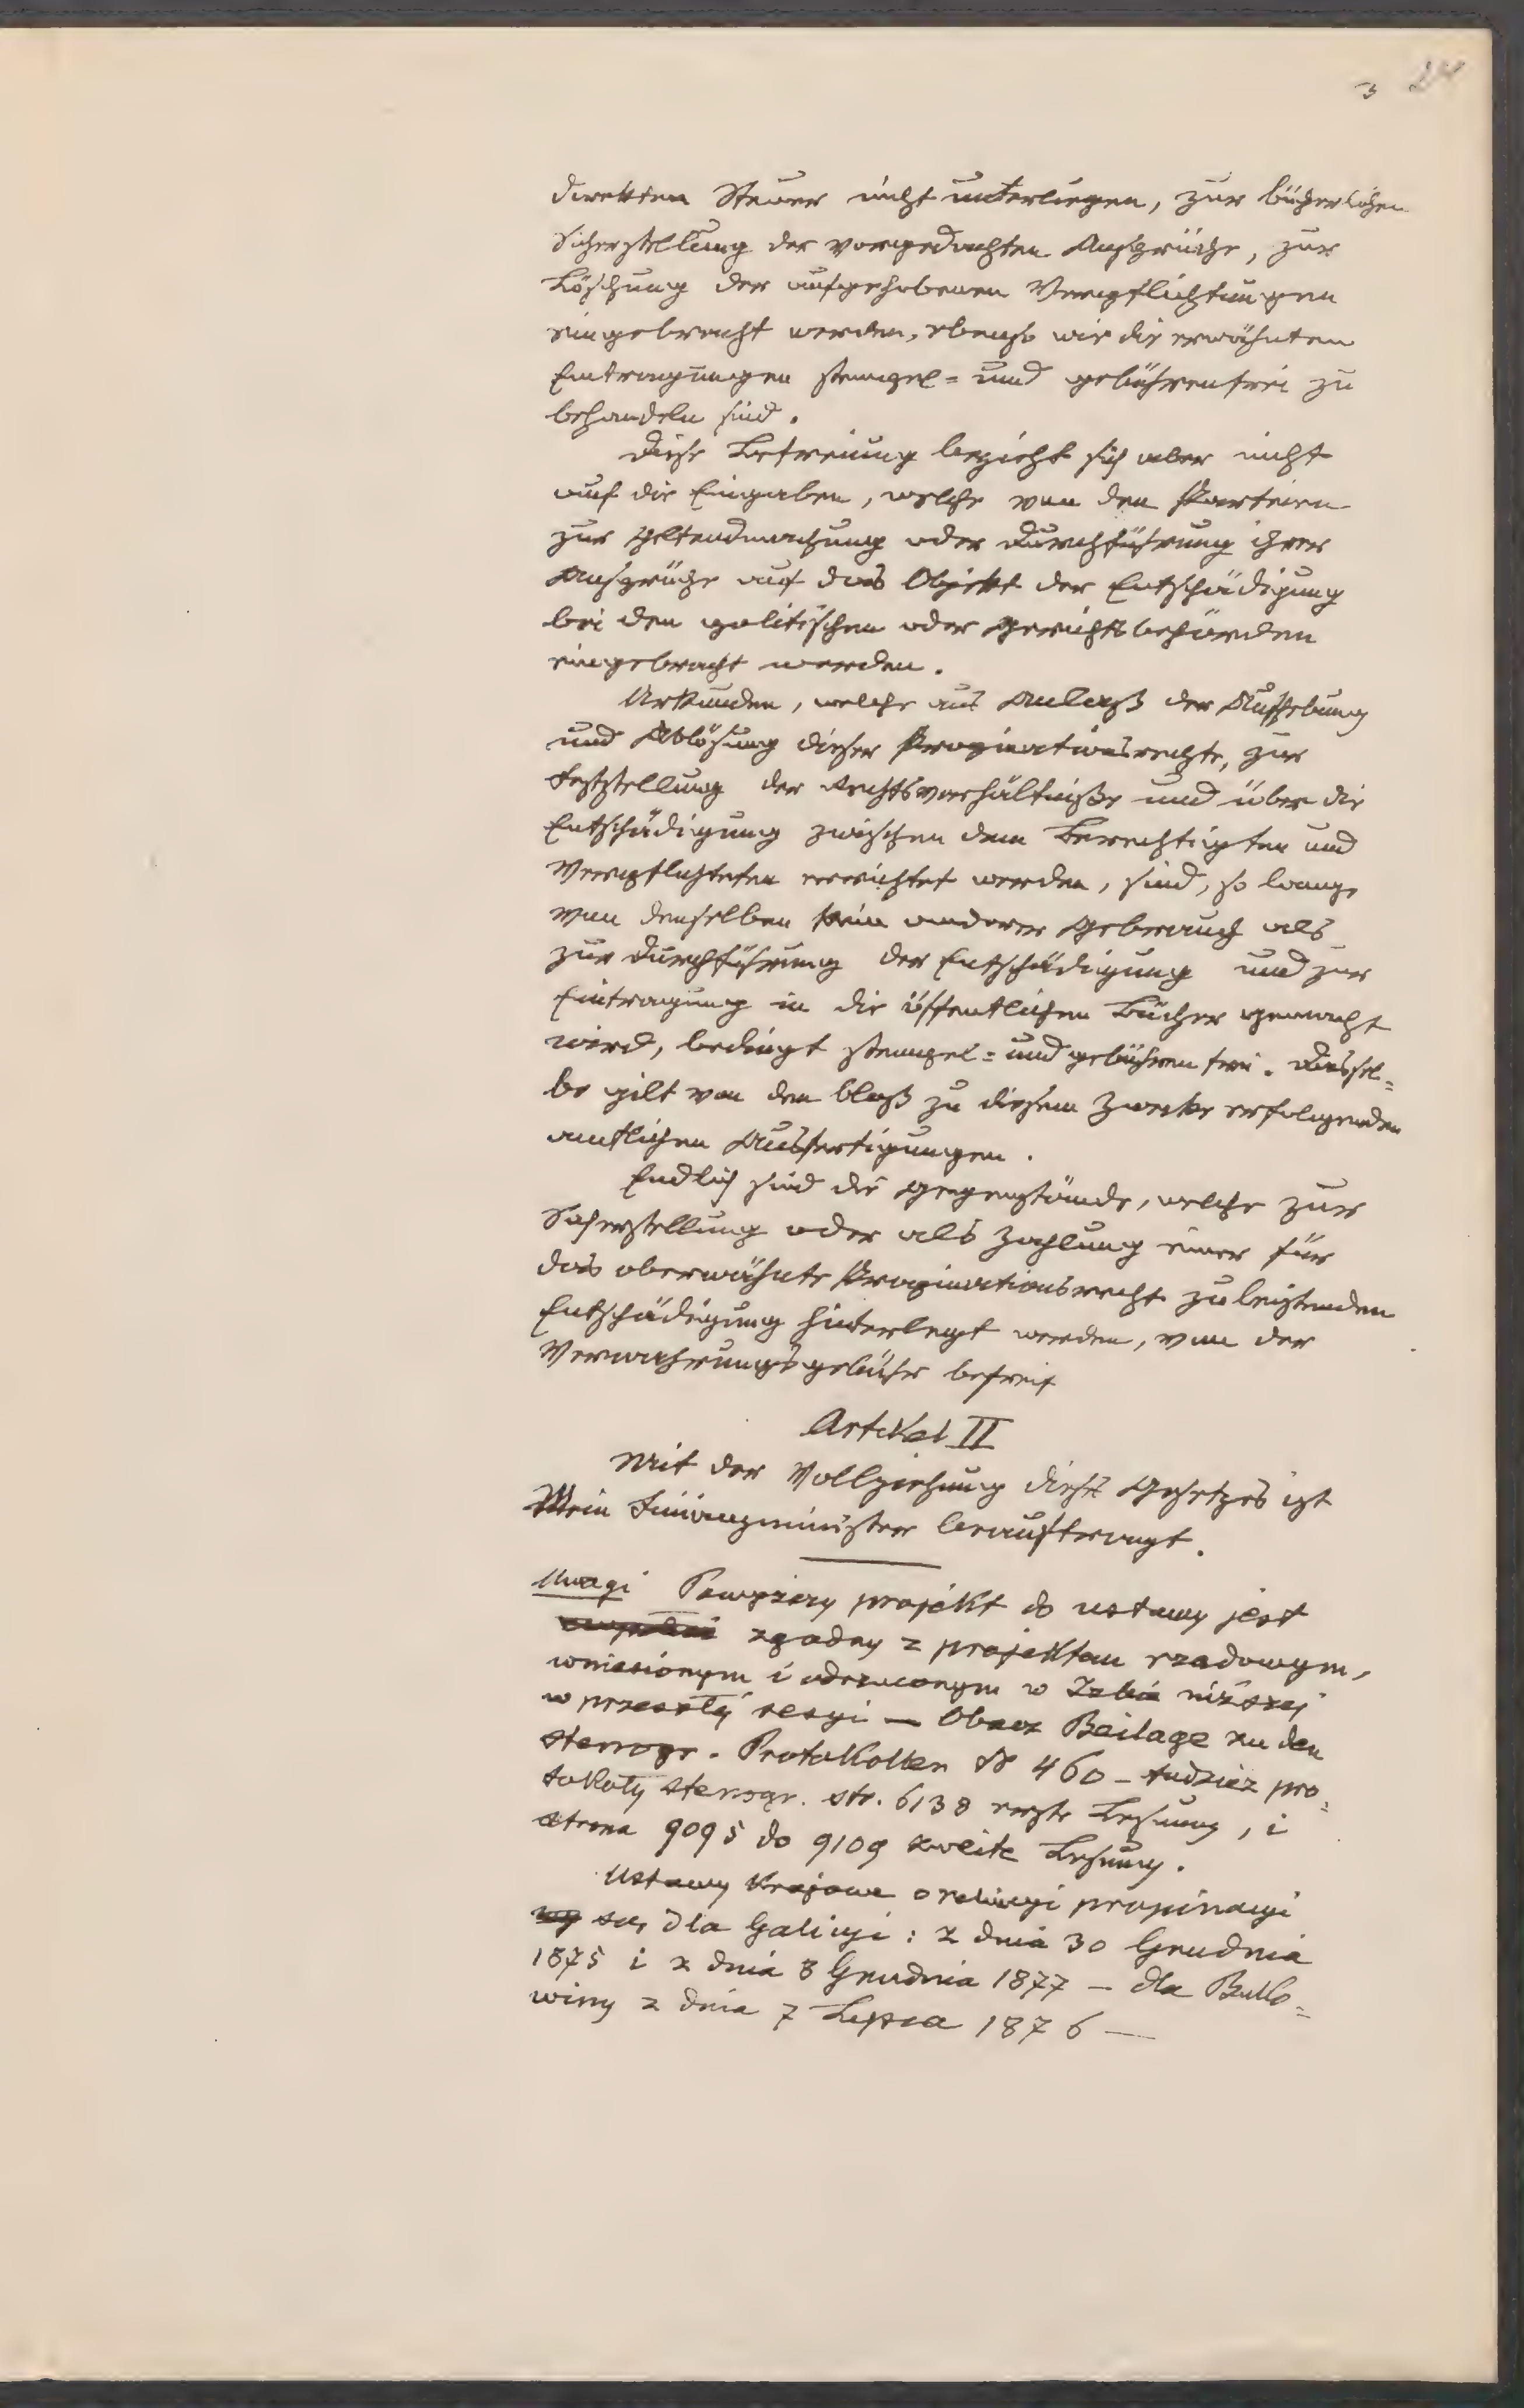 3 24
direkten Steuer nicht unterliegen, zur bücherlichen
Sicherstellung der vorgedachten Ansprüche, zur
Löschung der aufgehobenen Verpflichtungen
eingebracht werden, ebenso wie die erwähnten
Eintragungen stempel= und gebührenfrei zu
behandeln sind.
Diese Befreiung bezieht sich aber nicht
auf die Eingaben, welche von den Parteien
zur Geltendmachung oder Durchführung ihrer
Ansprüche auf das Objekt der Entschädigung
bei den politischen oder Gerichtsbehörden
eingebracht werden.
Urkunden, welche aus Anlaß der Aufhebung
und Ablösung dieser Propinationsrechte, zur
Feststellung der Rechtsverhältniße und über die
Entschädigung zwischen dem Berechtigten und
Verpflichteten errichtet werden, sind, so lange
von denselben kein anderer Gebrauch als
zur Durchführung der Entschädigung und zur
Eintragung in die öffentlichen Bücher gemacht
wird, bedingt stempel= und gebührenfrei. Dassel=
be gilt von den bloß zu diesem Zwecke erfolgenden
amtlichen Ausfertigungen.
Endlich sind die Gegenstände, welche zur
Sicherstellung oder als Zahlung einer für
das oberwähnte Propinationsrecht zu leistenden
Entschädigung hinterlegt werden, von der
Verwahrungsgebühr befreit
Artikel II
Mit der Vollziehung dieses Gesetzes ist
Mein Finanzminister beauftragt.
Uwagi Powyższy projekt do ustawy jest
zgodny z projektem rządowym,
wniesionym i odrzuconym w Izbie niższej
w przeszłéj sesyi — Obacz Beilage zu den
stenogr. Protokollen № 460 – tudzież pro=
tokoły stenogr. str. 6138 erste Lesung, i
strona 9095 do 9109 zweite Lesung.
Ustawy krajowe o propinacyi
są, dla Galicyi: z dnia 30 Grudnia
1875 i z dnia 8 Grudnia 1877 – dla Buko=
winy z dnia 7 Lipca 1876 —